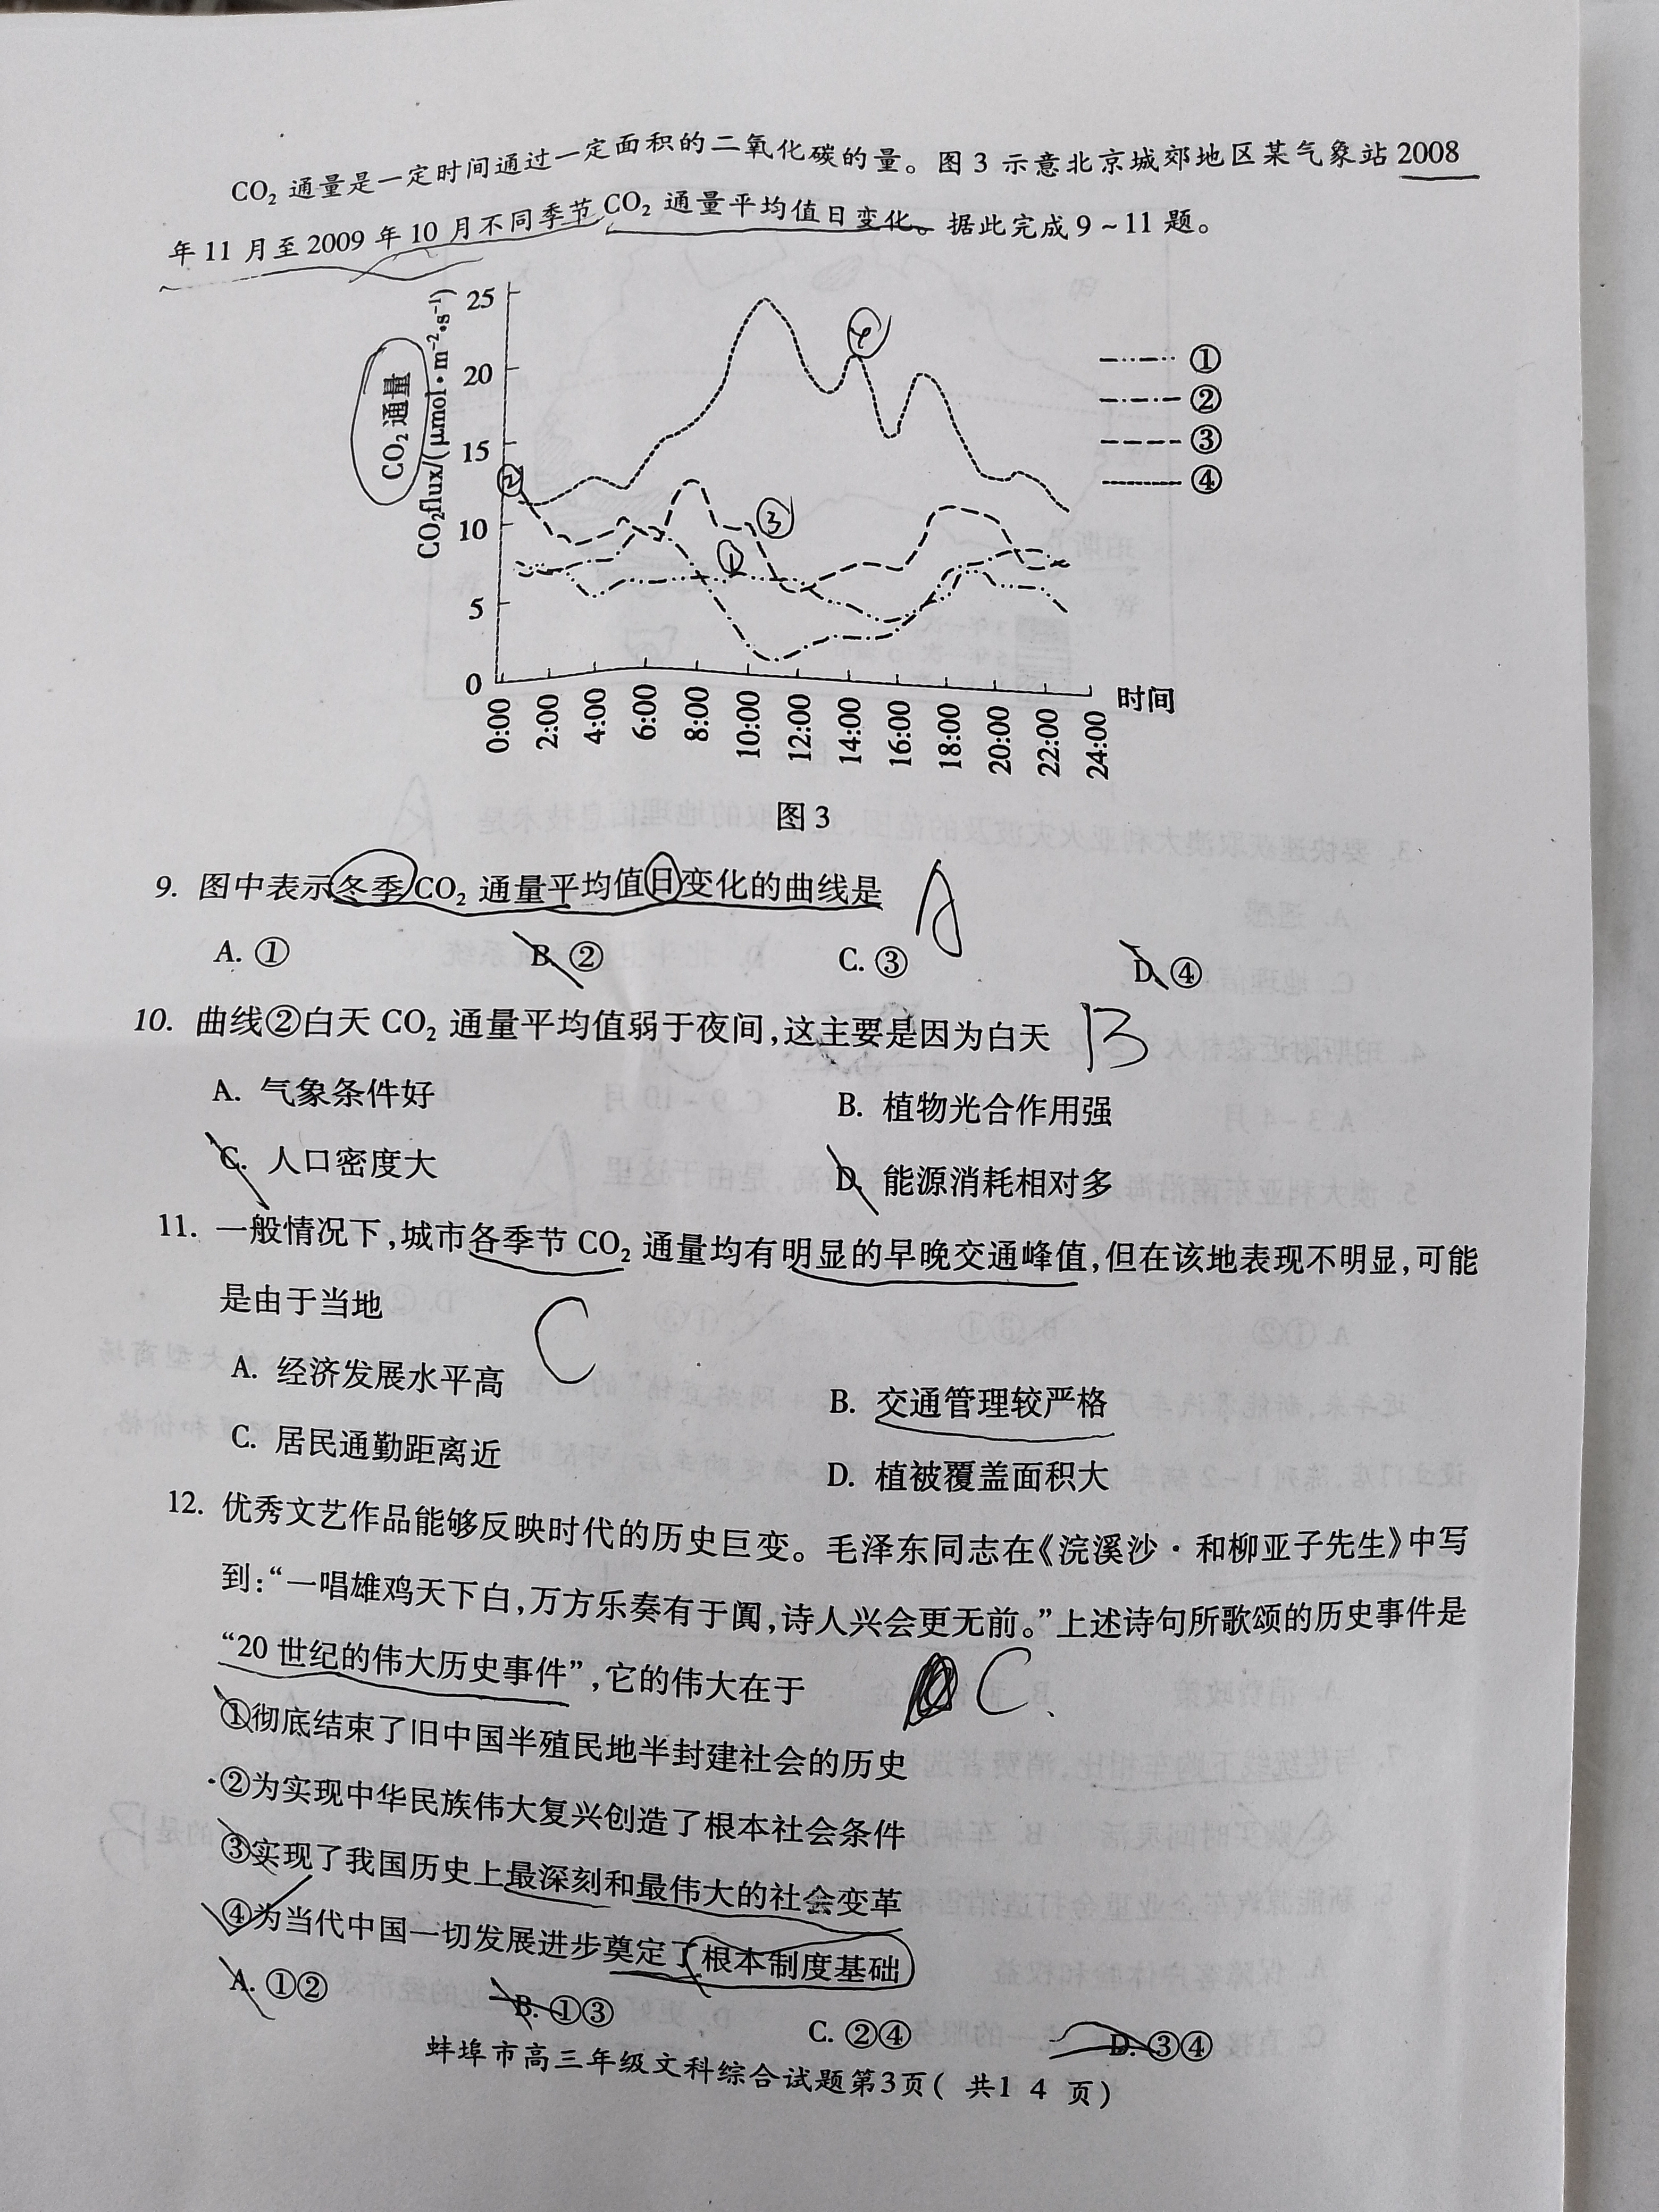 CO₂ 通量是一定时间通过一定面积的二氧化碳的量。图 3 示意北京城郊地区某气象站 2008
年 11 月至 2009 年 10 月不同季节 CO₂ 通量平均值日变化。据此完成 9~11 题。
CO₂ 通量
CO₂flux/(μmol·m⁻²·s⁻¹)
25
20
15
10
5
0
④
②
③
①
①
②
③
④
0:00 2:00 4:00 6:00 8:00 10:00 12:00 14:00 16:00 18:00 20:00 22:00 24:00
时间
图 3
9. 图中表示冬季 CO₂ 通量平均值日变化的曲线是 A
A. ① B. ② C. ③ D. ④
10. 曲线②白天 CO₂ 通量平均值弱于夜间,这主要是因为白天 B
A. 气象条件好 B. 植物光合作用强
C. 人口密度大 D. 能源消耗相对多
11. 一般情况下,城市各季节 CO₂ 通量均有明显的早晚交通峰值,但在该地表现不明显,可能
是由于当地 C
A. 经济发展水平高 B. 交通管理较严格
C. 居民通勤距离近 D. 植被覆盖面积大
12. 优秀文艺作品能够反映时代的历史巨变。毛泽东同志在《浣溪沙·和柳亚子先生》中写
到:“一唱雄鸡天下白,万方乐奏有于阗,诗人兴会更无前。”上述诗句所歌颂的历史事件是
“20 世纪的伟大历史事件”,它的伟大在于 C
①彻底结束了旧中国半殖民地半封建社会的历史
②为实现中华民族伟大复兴创造了根本社会条件
③实现了我国历史上最深刻和最伟大的社会变革
④为当代中国一切发展进步奠定了根本制度基础
A. ①② B. ①③ C. ②④ D. ③④
蚌埠市高三年级文科综合试题第3页( 共1 4 页)